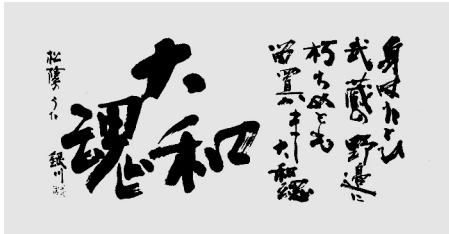 身はたとひ
武蔵の野邊に
朽ちぬとも
留置かまし大和魂
大和魂
松陰のうた